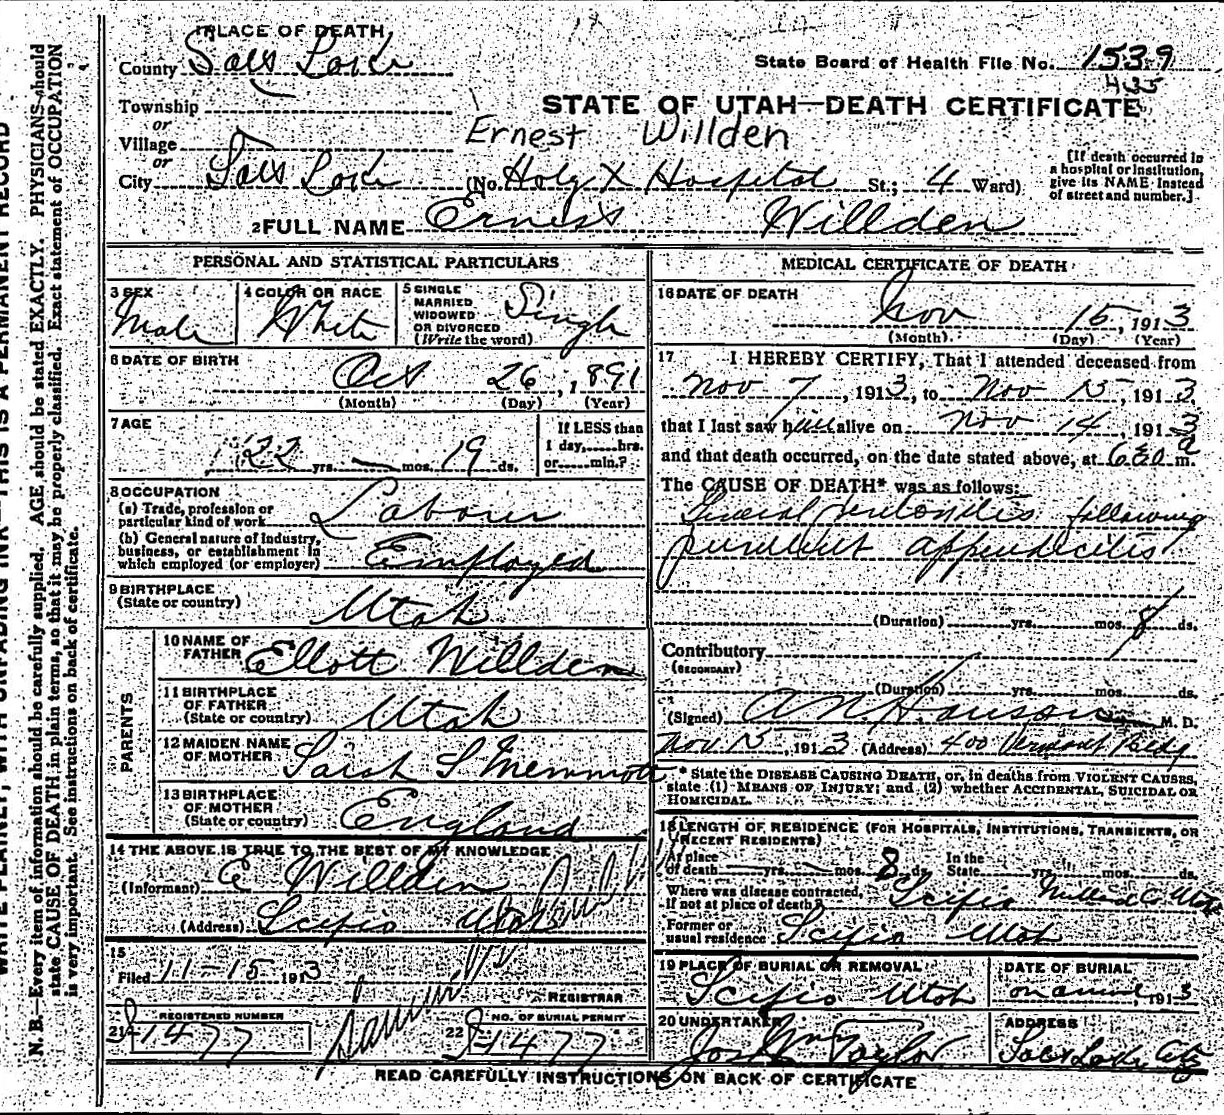 PLACE OF DEATH
County Salt Lake
State Board of Health File No. 1539
435
Township
or
STATE OF UTAH—DEATH CERTIFICATE
Village
Ernest Willden
or
City Salt Lake (No. Holy X Hospital St.; 4 Ward)
[If death occurred in
a hospital or institution,
give its NAME instead
of street and number.]
2 FULL NAME Ernest Willden
PERSONAL AND STATISTICAL PARTICULARS
3 SEX
Male
4 COLOR OR RACE
White
5 SINGLE
MARRIED
WIDOWED
OR DIVORCED
(Write the word)
Single
6 DATE OF BIRTH
Oct 26, 1891
(Month) (Day) (Year)
7 AGE
22 yrs. — mos. 19 ds.
If LESS than
1 day, hrs.
or min.?
8 OCCUPATION
(a) Trade, profession or
particular kind of work Labour
(b) General nature of industry,
business, or establishment in
which employed (or employer) Employed
9 BIRTHPLACE
(State or country) Utah
PARENTS
10 NAME OF
FATHER Ellott Willden
11 BIRTHPLACE
OF FATHER
(State or country) Utah
12 MAIDEN NAME
OF MOTHER Sarah S Memmott
13 BIRTHPLACE
OF MOTHER
(State or country) England
14 THE ABOVE IS TRUE TO THE BEST OF MY KNOWLEDGE
(Informant) E Willden
(Address) Scipio Utah
15
Filed 11-15 1913
REGISTRAR
REGISTERED NUMBER
21 1477
NO. OF BURIAL PERMIT
22 1477
MEDICAL CERTIFICATE OF DEATH
16 DATE OF DEATH
Nov 15, 1913
(Month) (Day) (Year)
17 I HEREBY CERTIFY, That I attended deceased from
Nov 7, 1913, to Nov 15, 1913.
that I last saw him alive on Nov 14, 1913
and that death occurred, on the date stated above, at a m.
The CAUSE OF DEATH* was as follows:
General peritonitis following
purulent appendicitis
(Duration) yrs. mos. 8 ds.
Contributory
(SECONDARY)
(Duration) yrs. mos. ds.
(Signed) A N Hanson M. D.
Nov 15, 1913 (Address) 400 Vermont Bldg
* State the DISEASE CAUSING DEATH, or, in deaths from VIOLENT CAUSES,
state (1) MEANS OF INJURY; and (2) whether ACCIDENTAL, SUICIDAL OR
HOMICIDAL.
18 LENGTH OF RESIDENCE (FOR HOSPITALS, INSTITUTIONS, TRANSIENTS, OR
RECENT RESIDENTS)
At place
of death yrs. mos. 8 ds.
In the
State yrs. mos. ds.
Where was disease contracted,
if not at place of death? Scipio Millard Co Utah
Former or
usual residence Scipio Utah
19 PLACE OF BURIAL OR REMOVAL
Scipio Utah
DATE OF BURIAL
on arrival 1913
20 UNDERTAKER
Jos Wm Taylor
ADDRESS
Salt Lake City
READ CAREFULLY INSTRUCTIONS ON BACK OF CERTIFICATE
WRITE PLAINLY, WITH UNFADING INK—THIS IS A PERMANENT RECORD
N. B.—Every item of information should be carefully supplied. AGE should be stated EXACTLY. PHYSICIANS should
state CAUSE OF DEATH in plain terms, so that it may be properly classified. Exact statement of OCCUPATION
is very important. See instructions on back of certificate.